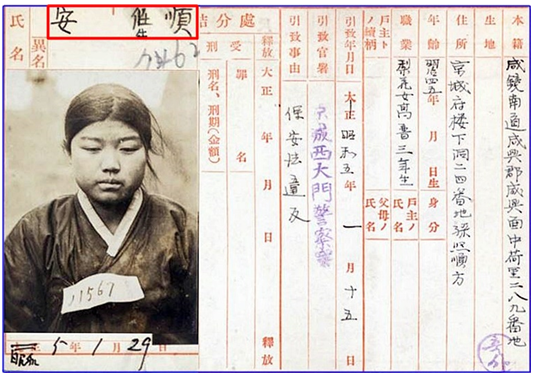 本籍 咸鏡南道咸興郡咸興面中荷里二八九番地
生地
住所 京城府楼下洞二四番地
年齢 四五年 月 日生 身分
職業 梨花女高普三年生 戸主ノ氏名
戸主トノ続柄 父母ノ氏名
引致年月日 大正 昭和五年一月十五日
引致官署 京城西大門警察署
引致事由 保安法違反
處分結
釋放 大正 年 月 日 釋放
受刑 罪名
刑名、刑期(金額)
氏名 安 順
異名
11567
5年1月29日